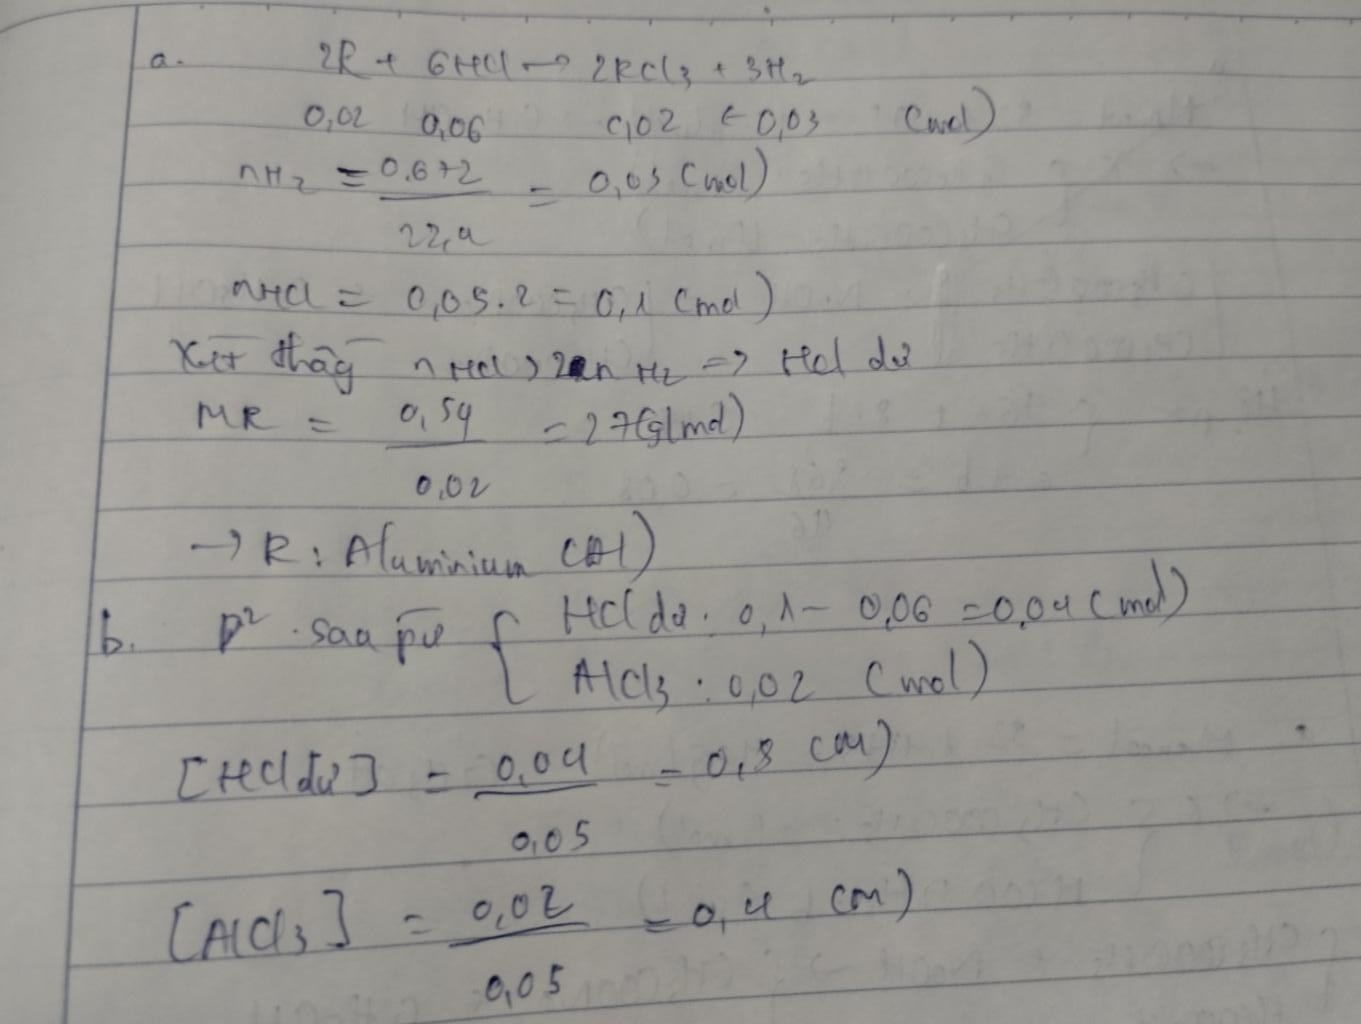 a. 2R + 6HCl → 2RCl3 + 3H2
0,02 0,06 0,02 ← 0,03 (mol)
nH2 = 0.672 / 22,4 = 0,03 (mol)
nHCl = 0,05.2 = 0,1 (mol)
Xét thấy nHCl > 2nH2 => HCl dư
MR = 0,54 / 0,02 = 27(g/mol)
→ R: Aluminium (Al)
b. D² sau pư { HCl dư: 0,1 - 0,06 = 0,04 (mol)
AlCl3 : 0,02 (mol)
[HCl dư] = 0,04 / 0,05 = 0,8 (M)
[AlCl3] = 0,02 / 0,05 = 0,4 (M)